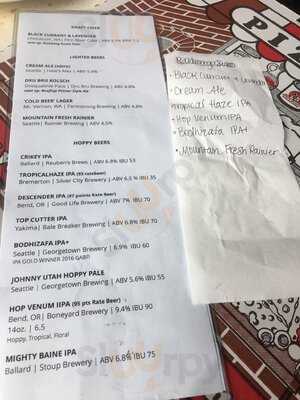 CRAFT CIDER
BLACK CURRANT & LAVENDER
LIGHTER BEERS
CREAM ALE (nitro)
Seattle | Hale's Ales | ABV 4.5%
DRU BRU KOLSCH
Snoqualmie Pass | Dru Bru Brewing | ABV 4.8%
'COLD BEER' LAGER
Mt. Vernon, WA | Farmstrong Brewing | ABV 4.8%
MOUNTAIN FRESH RAINIER
Seattle | Rainier Brewing | ABV 4.5%
HOPPY BEERS
CRIKEY IPA
Ballard | Reuben's Brews | ABV 6.8% IBU 53
TROPICALHAZE IPA (93 ratebeer)
Bremerton | Silver City Brewery | ABV 6.5 % IBU 35
DESCENDER IPA (97 points Rate Beer)
Bend, OR | Good Life Brewery | ABV 7% IBU 70
TOP CUTTER IPA
Yakima| Bale Breaker Brewing | ABV 6.8% IBU 70
BODHIZAFA IPA+
Seattle | Georgetown Brewing | 6.9% IBU 60
IPA GOLD WINNER 2016 GABF!
JOHNNY UTAH HOPPY PALE
Seattle | Georgetown Brewing | ABV 5.6% IBU 55
HOP VENUM IIPA (95 pts Rate Beer)
Bend, OR| Boneyard Brewery | 9.4% IBU 90
14oz. | 6.5
Hoppy, Tropical, Floral
MIGHTY BAINE IPA
Ballard | Stoup Brewery | ABV 6.8% IBU 75
• Black Currant + Lavender
• Cream Ale
Tropical Haze IPA
• Hop Venum IPA
• Bodhizafa IPA+
• Mountain Fresh Rainier